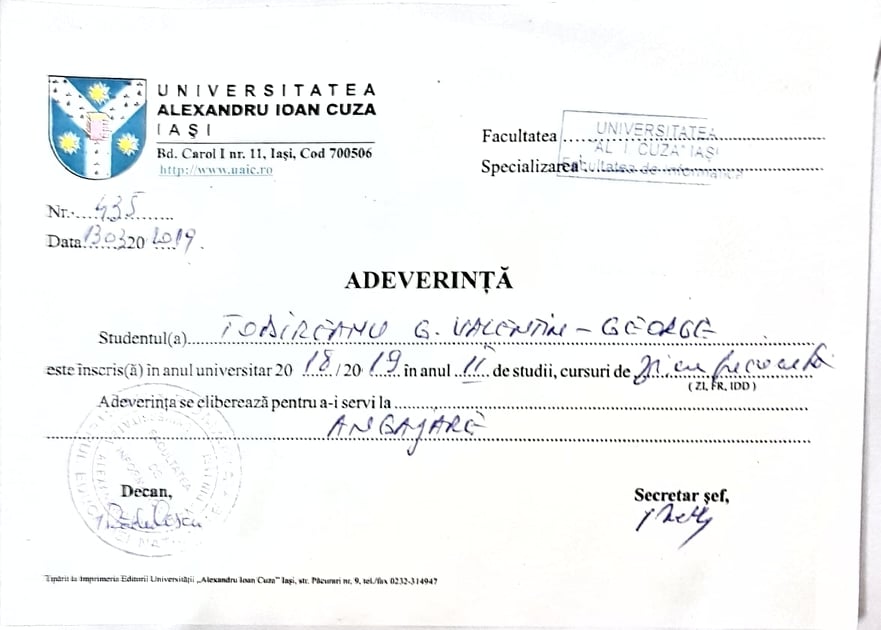 UNIVERSITATEA
ALEXANDRU IOAN CUZA
IAŞI
Bd. Carol I nr. 11, Iaşi, Cod 700506
http://www.uaic.ro
Facultatea
UNIVERSITATEA
"AL. I. CUZA" IAŞI
Facultatea de Informatică
Specializarea
Nr. 435
Data 13 03 20 2019.
ADEVERINŢĂ
Studentul(a) TOBIREANU G. VALENTIN - GEORGE
este înscris(ă) în anul universitar 20 18 / 20 19 în anul II de studii, cursuri de zi cu frecventă
( ZI, FR, IDD )
Adeverinţa se eliberează pentru a-i servi la
ANGAJARE
Decan,
Secretar şef,
Tipărit la Imprimeria Editurii Universităţii „Alexandru Ioan Cuza” Iaşi, str. Păcurari nr. 9, tel./fax 0232-314947